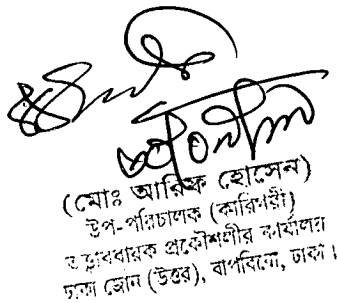 (মোঃ আরিফ হোসেন)
উপ-পরিচালক (কারিগরী)
তত্ত্বাবধায়ক প্রকৌশলীর কার্যালয়
ঢাকা জোন (উত্তর), বাপবিবো, ঢাকা।